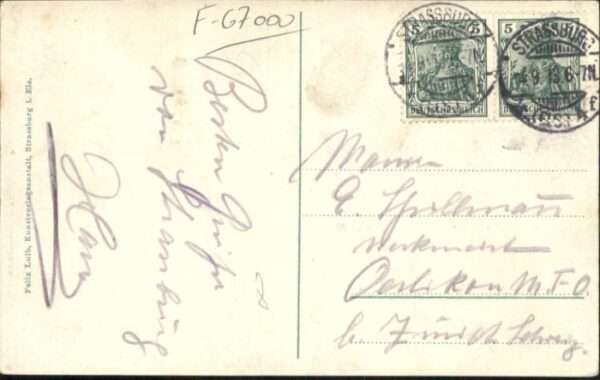 F-67000
Besten Gruß
von Strassburg
Hans
Felix Luib, Kunstverlagsanstalt, Strassburg i. Els.
STRASSBURG
5 5
DEUTSCHES REICH
STRASSBURG
4.9.13.6-7N.
(ELS)
f
A. Spillmann
Werkmeister
Oerlikon M.F.O.
b. Zürich Schweiz.